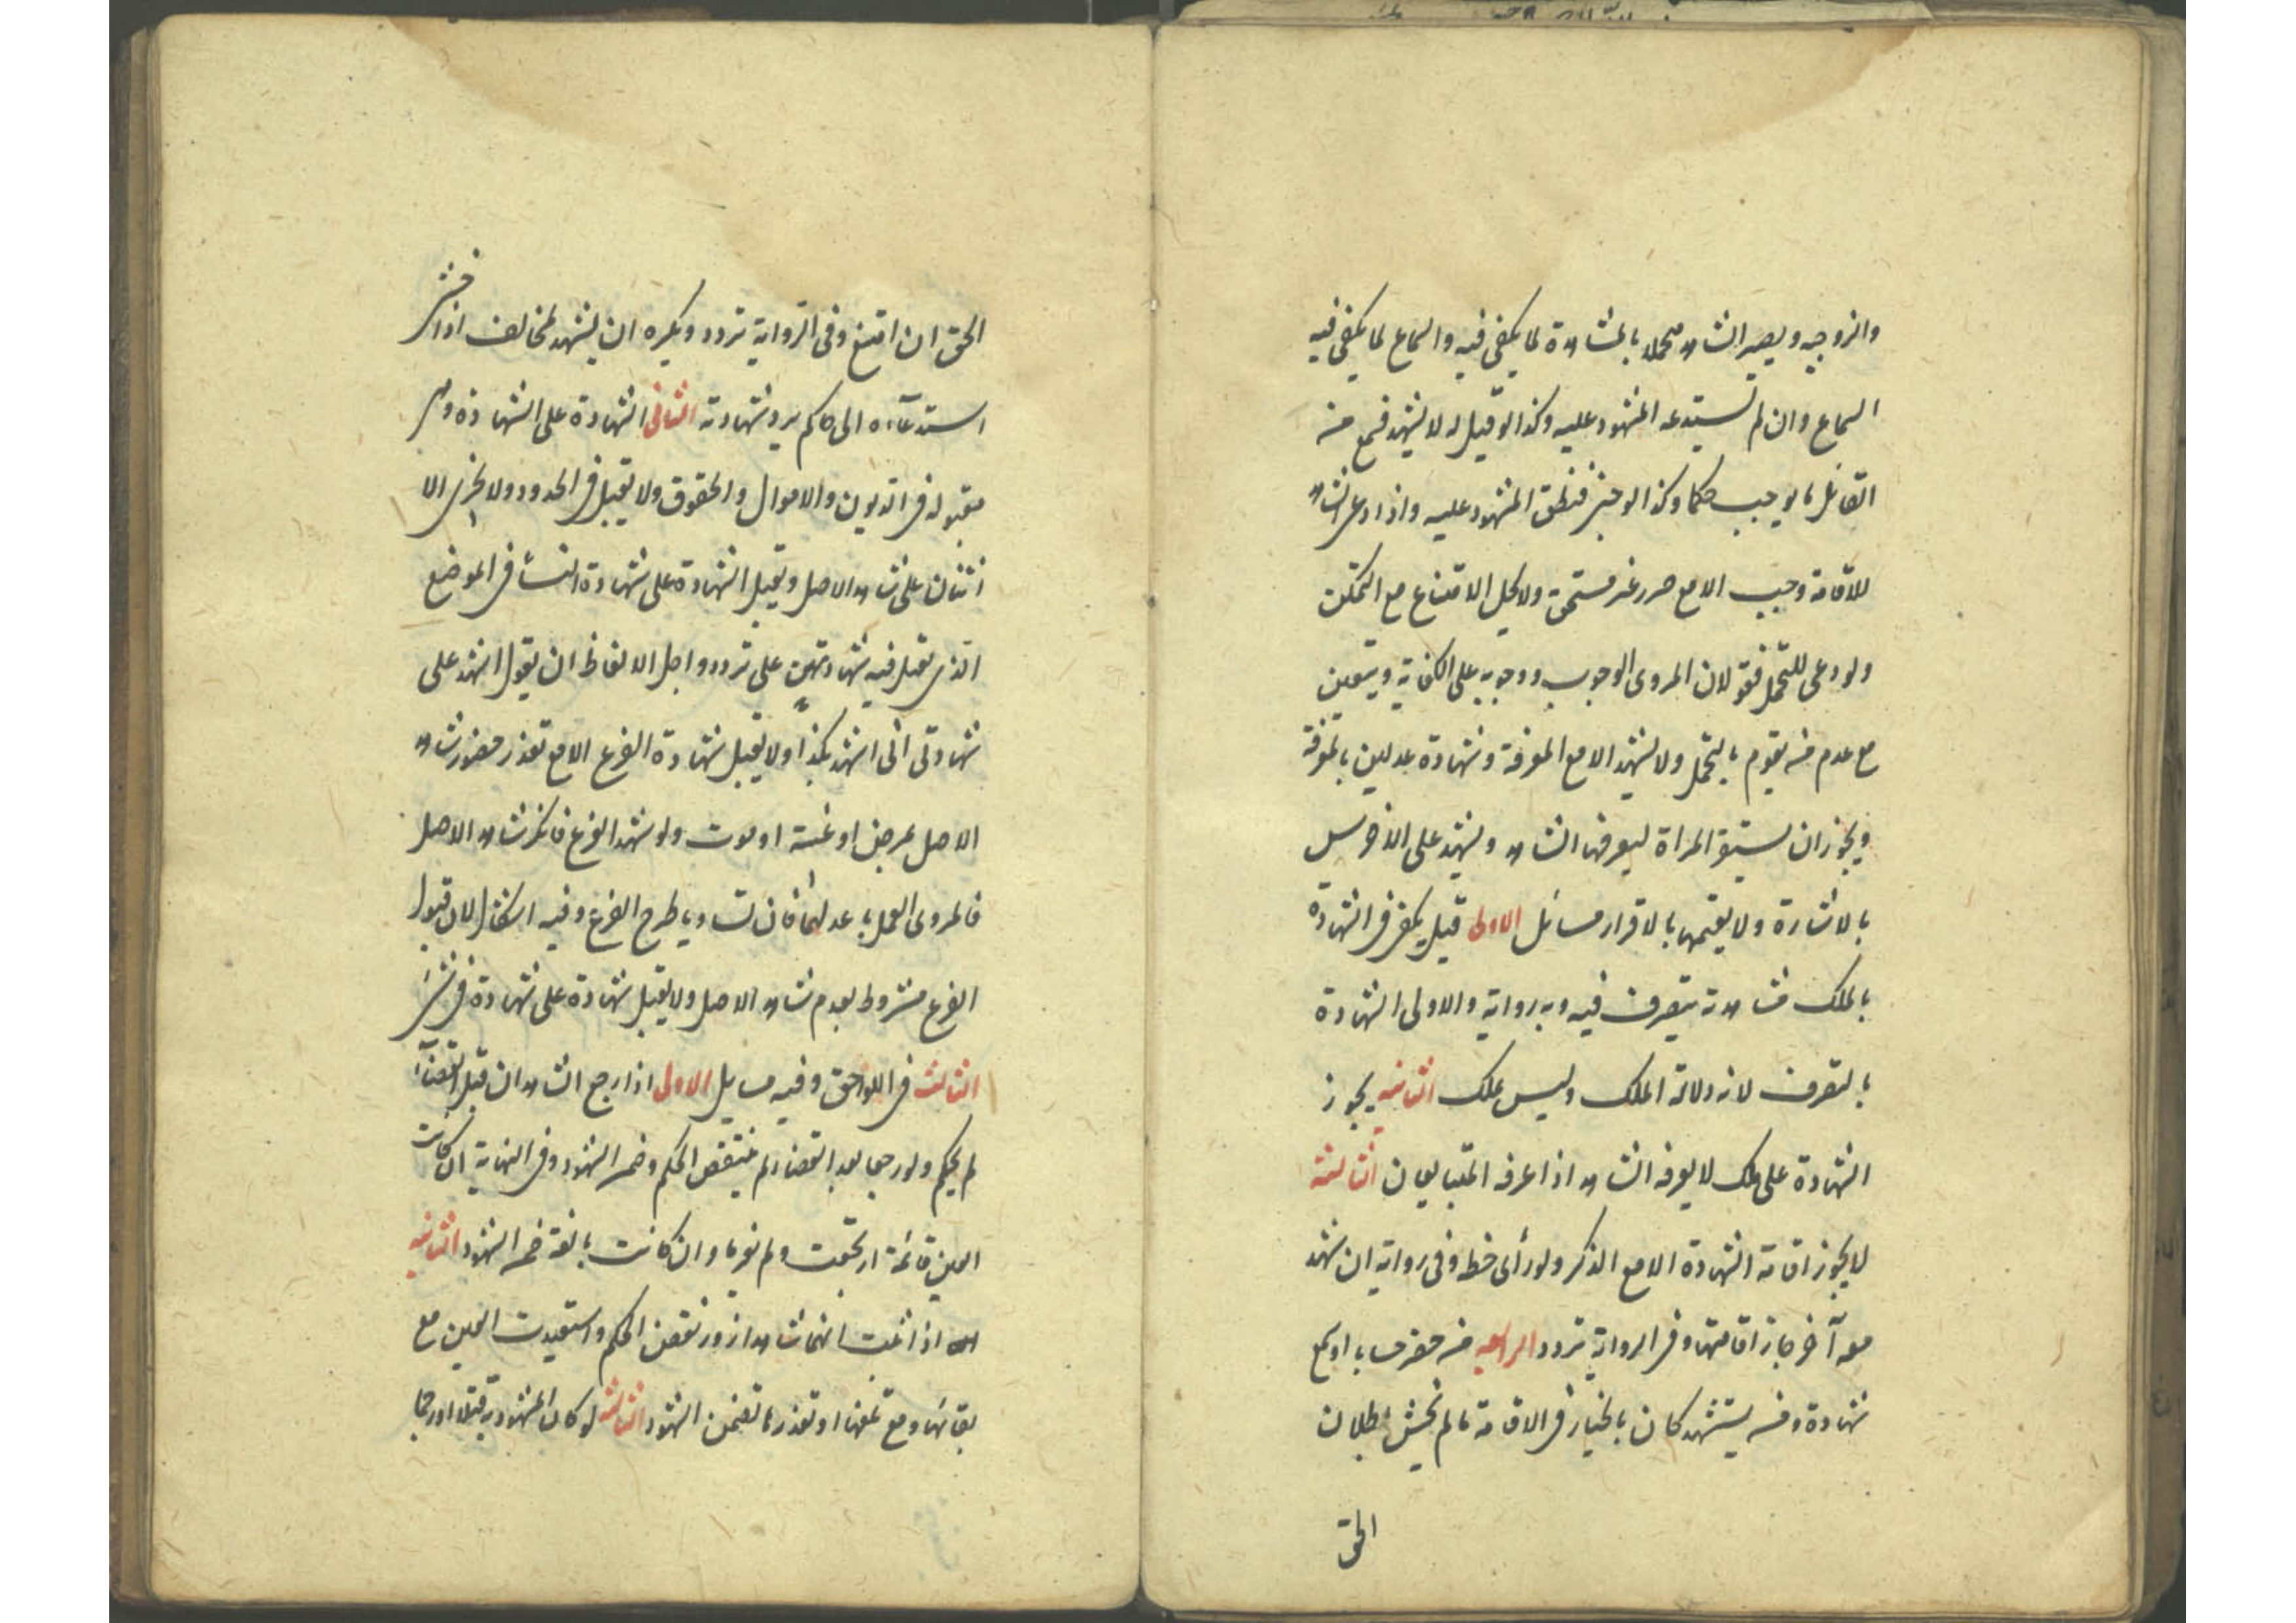 والزوجيه ويصير الشاهد متحملا بالمشاهدة لما يكفي فيه والسماع لما يكفي فيه
السماع وان لم يستدعه المشهود عليه وكذا لو قيل له لا تشهد فسمع من
القائل ما يوجب حكما وكذا لو خبئ فنطق المشهود عليه واذا دعى الشاهد
للاقامة وجب الا مع ضرر غير مستحق ولا يحل الامتناع مع التمكن
ولو دعى للتحمل فقولان المروى الوجوب ووجوبه على الكفاية ويتعين
مع عدم من يقوم بالتحمل ولا يشهد الا مع المعرفة وشهادة عدلين بالمعرفة
ويجوز ان تستفر المراة ليعرفها الشاهد ويشهد على الاخرس
بالاشارة ولا يقيمها بالاقرار مسائل الاولى قيل يكفى فى الشهادة
بالملك مشاهدته يتصرف فيه وبه رواية والاولى الشهادة
بالتصرف لانه دلالة الملك وليس بملك الثانيه يجوز
الشهادة على ملك لا يعرفه الشاهد اذا عرفه المتبايعان الثالثة
لا يجوز اقامة الشهادة الا مع الذكر ولو رأى خطه وفى رواية ان شهد
معه آخر جاز اقامتها وفى الرواية تردد الرابعه من حضر حسابا او سمع
شهادة ولم يستشهد كان بالخيار فى الاقامة ما لم يخش بطلان
الحق
الحق ان امتنع وفى الرواية تردد ويكره ان يشهد لمخالف اذا خشى
استدعاءه الى حاكم يرد شهادته الثانى الشهادة على الشهادة وهى
مقبولة فى الديون والاموال والحقوق ولا تقبل فى الحدود ولا يجزى الا
اثنان على شاهد الاصل وتقبل الشهادة على شهادة النساء فى الموضع
الذى تقبل فيه شهادتهن على تردد واجل الالفاظ ان يقول اشهد على
شهادتى انى اشهد بكذا ولا تقبل شهادة الفرع الا مع تعذر حضور شاهد
الاصل بمرض او غيبة او موت ولو شهد الفرع فانكر شاهد الاصل
فالمروى العمل باعدلهما فان تساويا طرح الفرع وفيه اشكال لان قبول
الفرع مشروط بعدم شاهد الاصل ولا تقبل شهادة على شهادة فى شئ
الثالث فى اللواحق وفيه مسايل الاولى اذا رجع الشاهدان قبل القضاء
لم يحكم ولو رجعا بعد القضاء لم ينتقض الحكم وضمن الشهود وفى النهاية ان كانت
العين قائمة ارتجعت ولم يغرما وان كانت تالفة ضمن الشهود الثانيه
اذا ثبت انهما شاهدا زور نقض الحكم واستعيدت العين مع
بقائها ومع تلفها او تعذرها تضمن الشهود الثالثه لو كان المشهود به قتلا او رجما